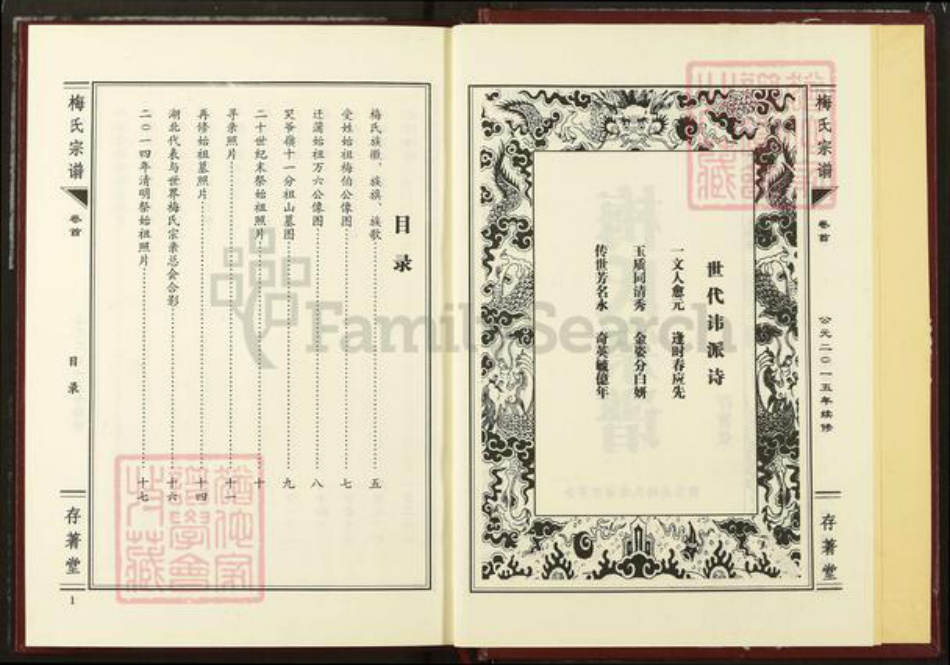 梅氏宗谱
卷首
公元二〇一五年续修
存著堂
世代讳派诗
一文人愈元 逢时春应先
玉质同清秀 金姿分白妍
传世芳名永 奇英毓億年
目录
梅氏族徽、族旗、族歌 五
受姓始祖梅伯公像图 七
迁蒲始祖万六公像图 八
爷嶺十一分祖山墓图 九
二十世纪末祭始祖照片 十
寻亲照片 十一
再修始祖墓照片 十四
湖北代表与世界梅氏宗亲总会合影 十六
二〇一四年清明祭始祖照片 十七
梅氏宗谱
卷首
目录
存著堂
1
FamilySearch